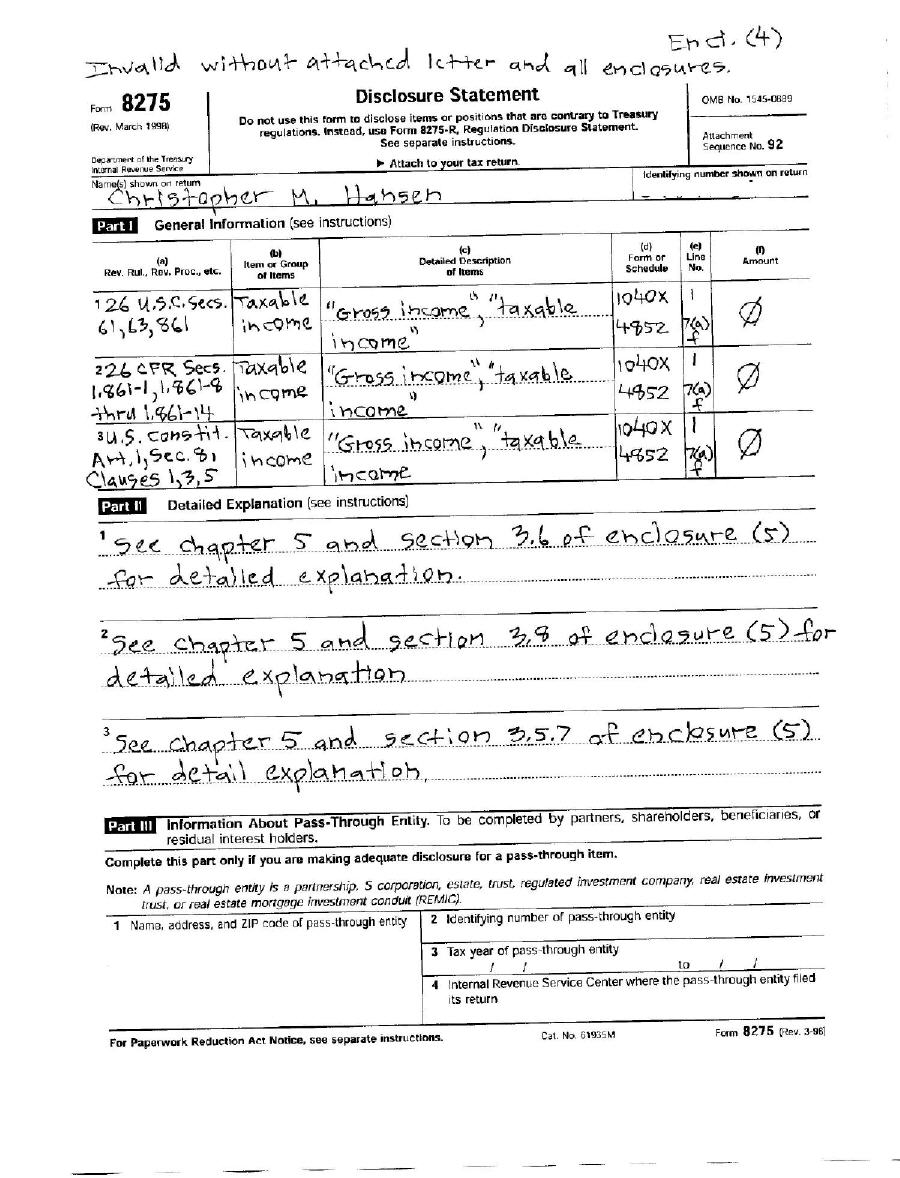 Encl. (4)
Invalid without attached letter and all enclosures.
Form 8275
(Rev. March 1998)
Department of the Treasury
Internal Revenue Service
Disclosure Statement
Do not use this form to disclose items or positions that are contrary to Treasury
regulations. Instead, use Form 8275-R, Regulation Disclosure Statement.
See separate instructions.
▶ Attach to your tax return.
OMB No. 1545-0889
Attachment
Sequence No. 92
Name(s) shown on return
Christopher M. Hansen
Identifying number shown on return
Part I General Information (see instructions)
(a)
Rev. Rul., Rev. Proc., etc.
(b)
Item or Group
of Items
(c)
Detailed Description
of Items
(d)
Form or
Schedule
(e)
Line
No.
(f)
Amount
1 26 U.S.C. Secs.
61, 63, 861
Taxable
income
"Gross income", "taxable
income"
1040X
4852
1
7(a)
f
Ø
2 26 CFR Secs.
1.861-1, 1.861-8
thru 1.861-14
Taxable
income
"Gross income", "taxable
income"
1040X
4852
1
7(a)
f
Ø
3 U.S. Constit.
Art. 1, Sec. 8,
Clauses 1, 3, 5
Taxable
income
"Gross income", "taxable
income"
1040X
4852
1
7(a)
f
Ø
Part II Detailed Explanation (see instructions)
1 See chapter 5 and section 3.6 of enclosure (5)
for detailed explanation.
2 See chapter 5 and section 3.8 of enclosure (5) for
detailed explanation
3 See chapter 5 and section 3.5.7 of enclosure (5)
for detail explanation.
Part III Information About Pass-Through Entity. To be completed by partners, shareholders, beneficiaries, or
residual interest holders.
Complete this part only if you are making adequate disclosure for a pass-through item.
Note: A pass-through entity is a partnership, S corporation, estate, trust, regulated investment company, real estate investment
trust, or real estate mortgage investment conduit (REMIC).
1 Name, address, and ZIP code of pass-through entity
2 Identifying number of pass-through entity
3 Tax year of pass-through entity
/ / to / /
4 Internal Revenue Service Center where the pass-through entity filed
its return
For Paperwork Reduction Act Notice, see separate instructions.
Cat. No. 61935M
Form 8275 (Rev. 3-98)